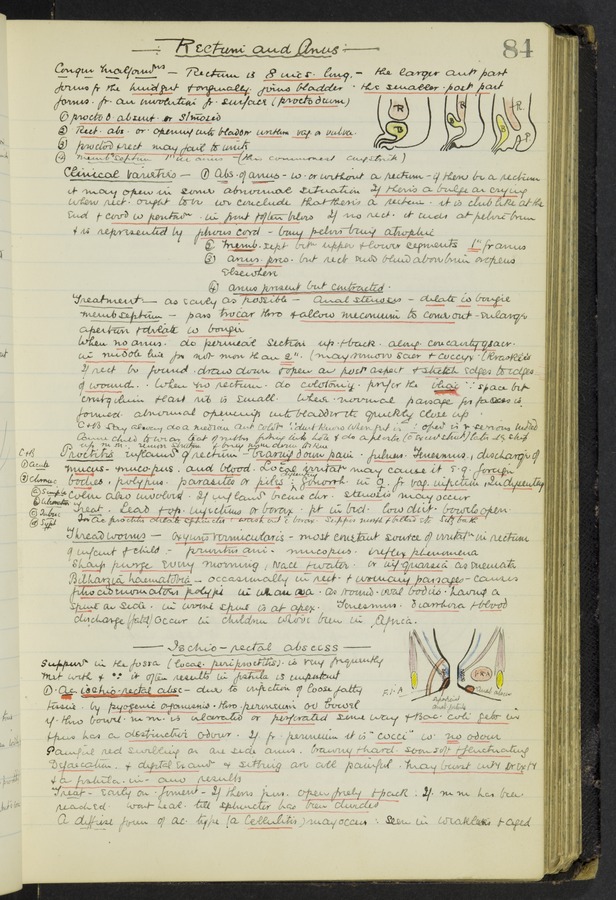 Rectum and Anus
84
Congen malformns — Rectum is 8 incs. long. — the larger antr part
forms fr the hindgut & originally joins bladder . the smaller . post part
forms . fr an involution fr surface (proctodoeum)
① proctod absent . or stenosed
② Rect. abs . or opening into bladder urethra vag. or vulva.
③ proctod & rect may fail to unite
④ memb. septum 1" in anus — (the commonest
Clinical varieties — ① Abs. of anus . w. or without a rectum — if there be a rectum
it may open in some abnormal situation If there is a bulge on crying
when rect. ought to be we conclude that there is a rectum . it is club like at the
end & covd w peritonm . in front & often behind If no rect. it ends at pelvic brim
& is represented by fibrous cord — bony pelvis being atrophied
② Memb. sept betn upper & lower segments 1" fr anus
③ anus pres. but rect ends blind above brim or opens
elsewhere
④ anus present but contracted.
Treatment — as early as possible — Anal stenosis — dilate w bougie
memb septum — pass trocar thro & allow meconium to come out — enlarge
aperture & dilate w bougie
When no anus. do perineal section up & back . along concavity of sacr.
in middle line for not more than 2". (may remove sacr & coccyx (Kraske's
If rect be found . draw down & open on post aspect & stitch edges to edges
of wound. . When no rectum . do colotomy . prefer the iliac ∵ space bet
crest & ilium & last rib is small. When normal passage for faeces is
formed . abnormal openings into bladder etc quickly close up .
C & B
① acute
② chronic
Proctitis inflamn of rectum — bearing down pain . fulness. Tenesmus, discharge of
mucus . mucopus . and blood . Local irritatn may cause it e.g. foreign
bodies, polypus . parasites or piles ; Gonorrh in ♀ fr vag. infection, in dysentery
Colon also involved . If inflamn become chr. stenosis may occur
Treat . Lead & op. injections or borax . pt in bed . low diet . bowels open.
Thread worms — Oxyuris vermicularis — most constant source of irritatn in rectum
of infant & child — pruritus ani . mucopus . reflex phenomena
Sharp purge every morning . NaCl & water . or inf quassia as enemata
Bilharzia haematobia — occasionally in rect. & urinary passages — causes
fibroadenomatous polypi in wh are ova . as round . oval bodies . having a
spine on side . in urine spine is at apex . Tenesmus . diarrhoea & blood
discharge (fatal) occur in children who've been in Africa.
Ischio-rectal abscess
Suppurn in the fossa (local periproctitis) . is very frequently
met with & ∵ it often results in fistula is important
① Ac ischio-rectal absc — due to infection of loose fatty
tissue by pyogenic organisms . thro perineum or bowel
If thro bowel m.m. is ulcerated or perforated some way & Bac. coli gets in
& pus has a distinctive odour . If fr. perineum it is "cocci" w no odour
Painful red swelling on one side anus . brawny & hard soon soft & fluctuating
Defaecation . & digital examn & sitting are all painful . may burst
& a fistula — in — ano results
Treat — Early on foment — If there is pus . open freely & pack . If m m has been
reached wont heal . till sphincter has been divided
A diffuse form of ac. type (a Cellulitis) may occur . seen in weaklings & aged